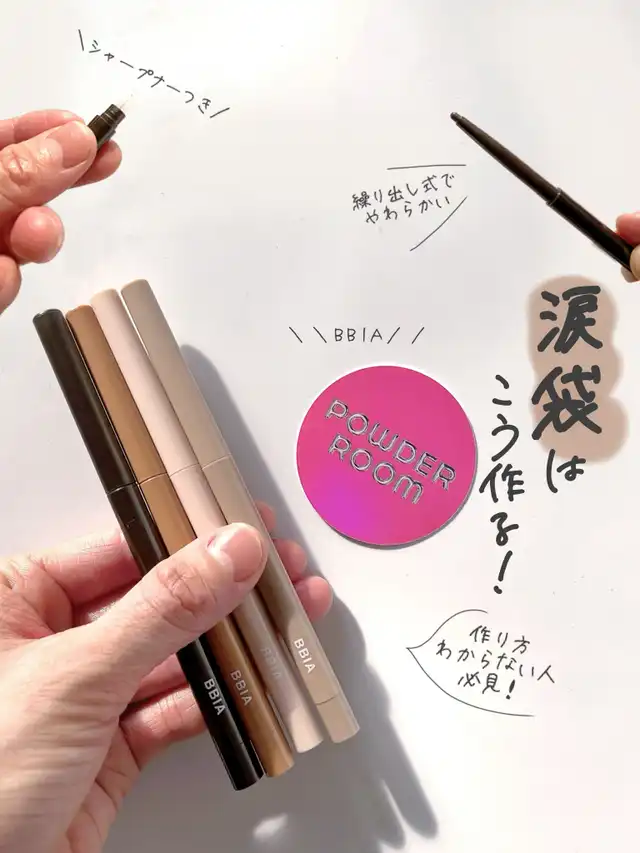 \シャープナーつき/
繰り出し式で
やわらかい
\\BBIA//
POWDER
ROOM
涙袋は
こう作る!
作り方
わからない人
必見!
BBIA
BBIA
BBIA
BBIA